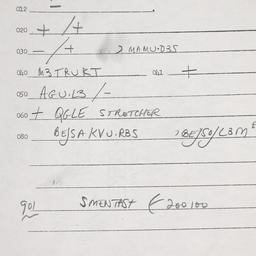 012 —
020 + /+
030 — /+ > MAMU·D35
040 M3TRUKT 041 +
050 AGU·L3 /-
060 + QGLE STRETCHER
080 BE/SA·KVU·RBS >BE/50/L3M
901 SMENTAST 200100